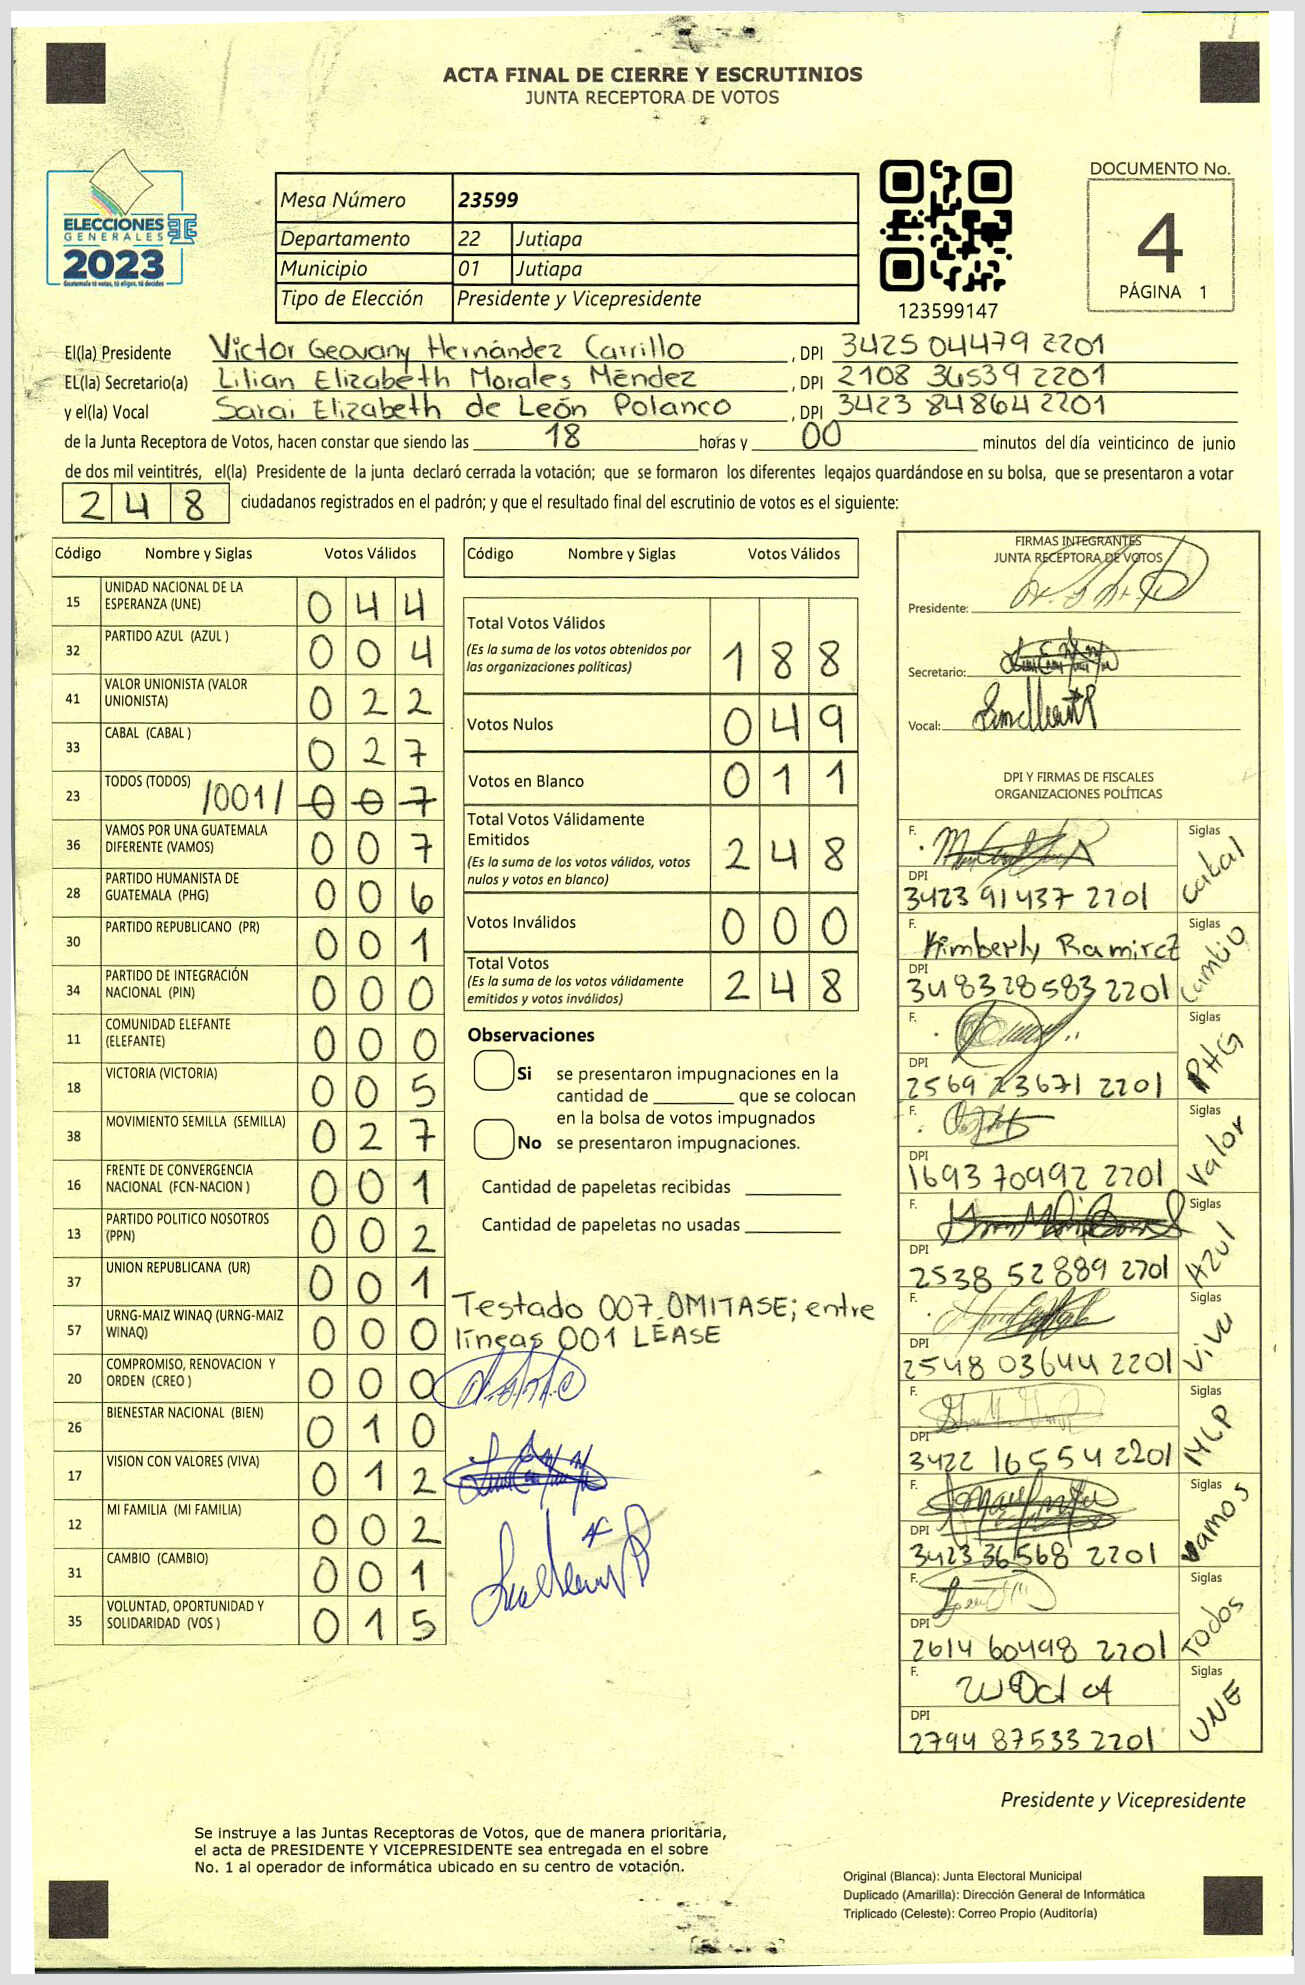 ACTA FINAL DE CIERRE Y ESCRUTINIOS
JUNTA RECEPTORA DE VOTOS
ELECCIONES
GENERALES
2023
Guatemala tú votas, tú eliges, tú decides
Mesa Número 23599
Departamento 22 Jutiapa
Municipio 01 Jutiapa
Tipo de Elección Presidente y Vicepresidente
123599147
DOCUMENTO No.
4
PÁGINA 1
El(la) Presidente Victor Geovany Hernández Carrillo, DPI 3425 04479 2201
EL(la) Secretario(a) Lilian Elizabeth Morales Méndez, DPI 2108 36539 2201
y el(la) Vocal Sarai Elizabeth de León Polanco, DPI 3423 84864 2201
de la Junta Receptora de Votos, hacen constar que siendo las 18 horas y 00 minutos del día veinticinco de junio
de dos mil veintitrés, el(la) Presidente de la junta declaró cerrada la votación; que se formaron los diferentes legajos guardándose en su bolsa, que se presentaron a votar
248 ciudadanos registrados en el padrón; y que el resultado final del escrutinio de votos es el siguiente:
Código Nombre y Siglas Votos Válidos
15 UNIDAD NACIONAL DE LA ESPERANZA (UNE) 044
32 PARTIDO AZUL (AZUL ) 004
41 VALOR UNIONISTA (VALOR UNIONISTA) 022
33 CABAL (CABAL ) 027
23 TODOS (TODOS) /001/ 007
36 VAMOS POR UNA GUATEMALA DIFERENTE (VAMOS) 007
28 PARTIDO HUMANISTA DE GUATEMALA (PHG) 006
30 PARTIDO REPUBLICANO (PR) 001
34 PARTIDO DE INTEGRACIÓN NACIONAL (PIN) 000
11 COMUNIDAD ELEFANTE (ELEFANTE) 000
18 VICTORIA (VICTORIA) 005
38 MOVIMIENTO SEMILLA (SEMILLA) 027
16 FRENTE DE CONVERGENCIA NACIONAL (FCN-NACION ) 001
13 PARTIDO POLITICO NOSOTROS (PPN) 002
37 UNION REPUBLICANA (UR) 001
57 URNG-MAIZ WINAQ (URNG-MAIZ WINAQ) 000
20 COMPROMISO, RENOVACION Y ORDEN (CREO ) 000
26 BIENESTAR NACIONAL (BIEN) 010
17 VISION CON VALORES (VIVA) 012
12 MI FAMILIA (MI FAMILIA) 002
31 CAMBIO (CAMBIO) 001
35 VOLUNTAD, OPORTUNIDAD Y SOLIDARIDAD (VOS ) 015
Código Nombre y Siglas Votos Válidos
Total Votos Válidos
(Es la suma de los votos obtenidos por las organizaciones políticas) 188
Votos Nulos 049
Votos en Blanco 011
Total Votos Válidamente Emitidos
(Es la suma de los votos válidos, votos nulos y votos en blanco) 248
Votos Inválidos 000
Total Votos
(Es la suma de los votos válidamente emitidos y votos inválidos) 248
Observaciones
Si se presentaron impugnaciones en la
cantidad de ________ que se colocan
en la bolsa de votos impugnados
No se presentaron impugnaciones.
Cantidad de papeletas recibidas
Cantidad de papeletas no usadas
Testado 007 OMITASE; entre
líneas 001 LÉASE
FIRMAS INTEGRANTES
JUNTA RECEPTORA DE VOTOS
Presidente:
Secretario:
Vocal:
DPI Y FIRMAS DE FISCALES
ORGANIZACIONES POLÍTICAS
F. Siglas Cabal
DPI 3423 91437 2201
F. Kimberly Ramirez Siglas Cambio
DPI 3483 28583 2201
F. Siglas PHG
DPI 2569 23671 2201
F. Siglas Valor
DPI 1693 70992 2201
F. Siglas Azul
DPI 2538 52889 2201
F. Siglas Viva
DPI 2548 03644 2201
F. Siglas MLP
DPI 3422 16554 2201
F. Siglas Vamos
DPI 3423 36568 2201
F. Siglas Todos
DPI 2614 60498 2201
F. Siglas UNE
DPI 2794 87533 2201
Presidente y Vicepresidente
Se instruye a las Juntas Receptoras de Votos, que de manera prioritaria,
el acta de PRESIDENTE Y VICEPRESIDENTE sea entregada en el sobre
No. 1 al operador de informática ubicado en su centro de votación.
Original (Blanca): Junta Electoral Municipal
Duplicado (Amarilla): Dirección General de Informática
Triplicado (Celeste): Correo Propio (Auditoría)